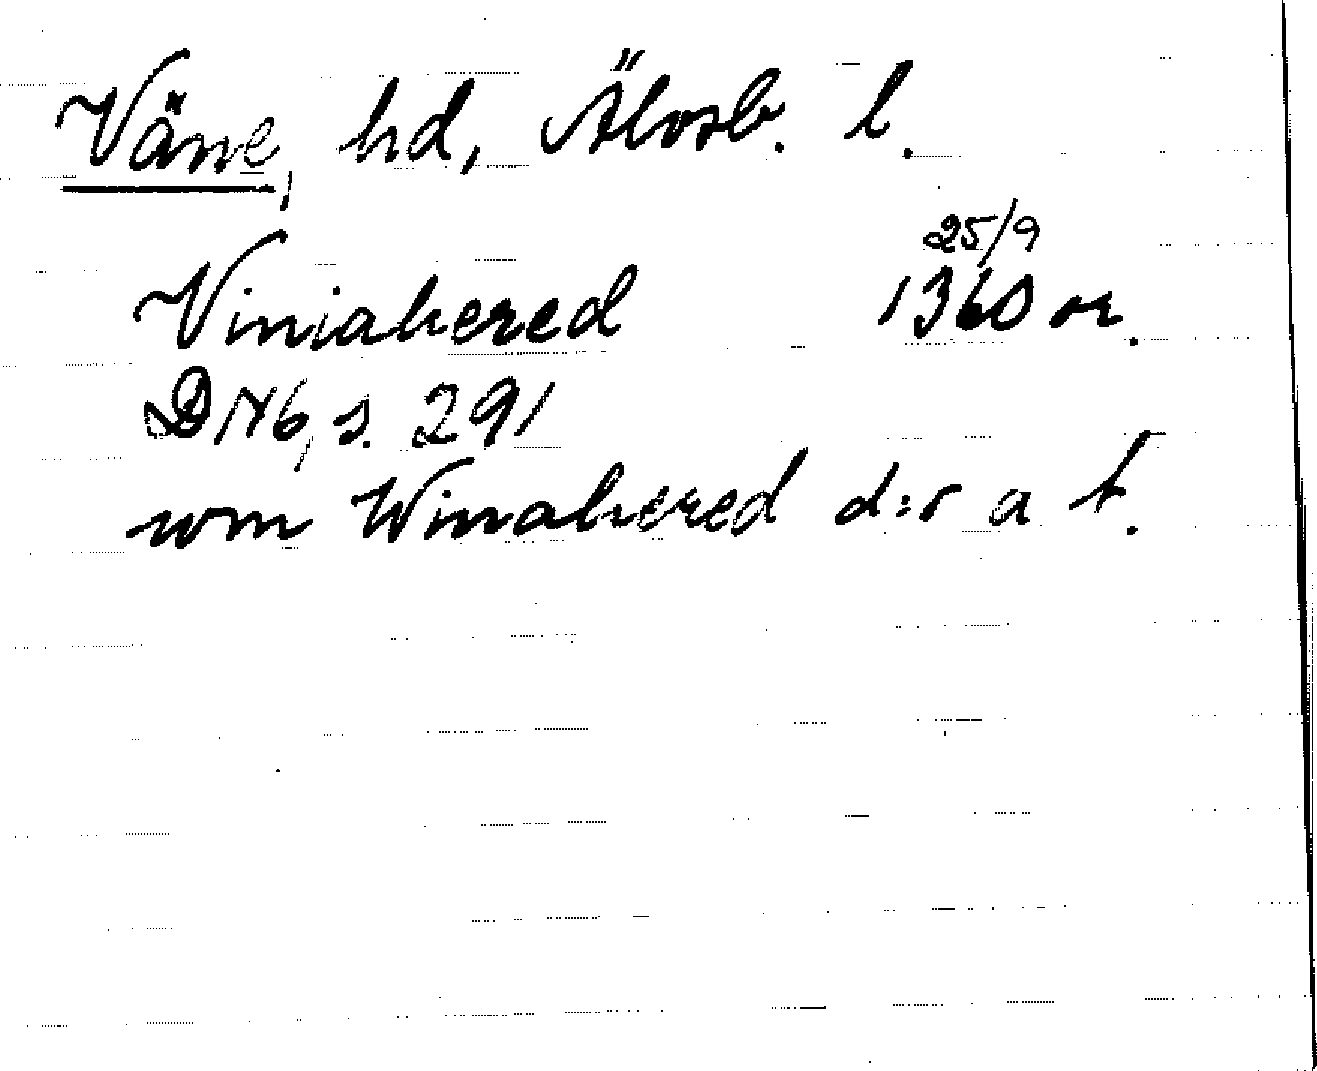 Väne, hd, Älvsb. l.
25/9
Viniahered 1360 or.
DN6, s. 291
som Winahered d:r a t.